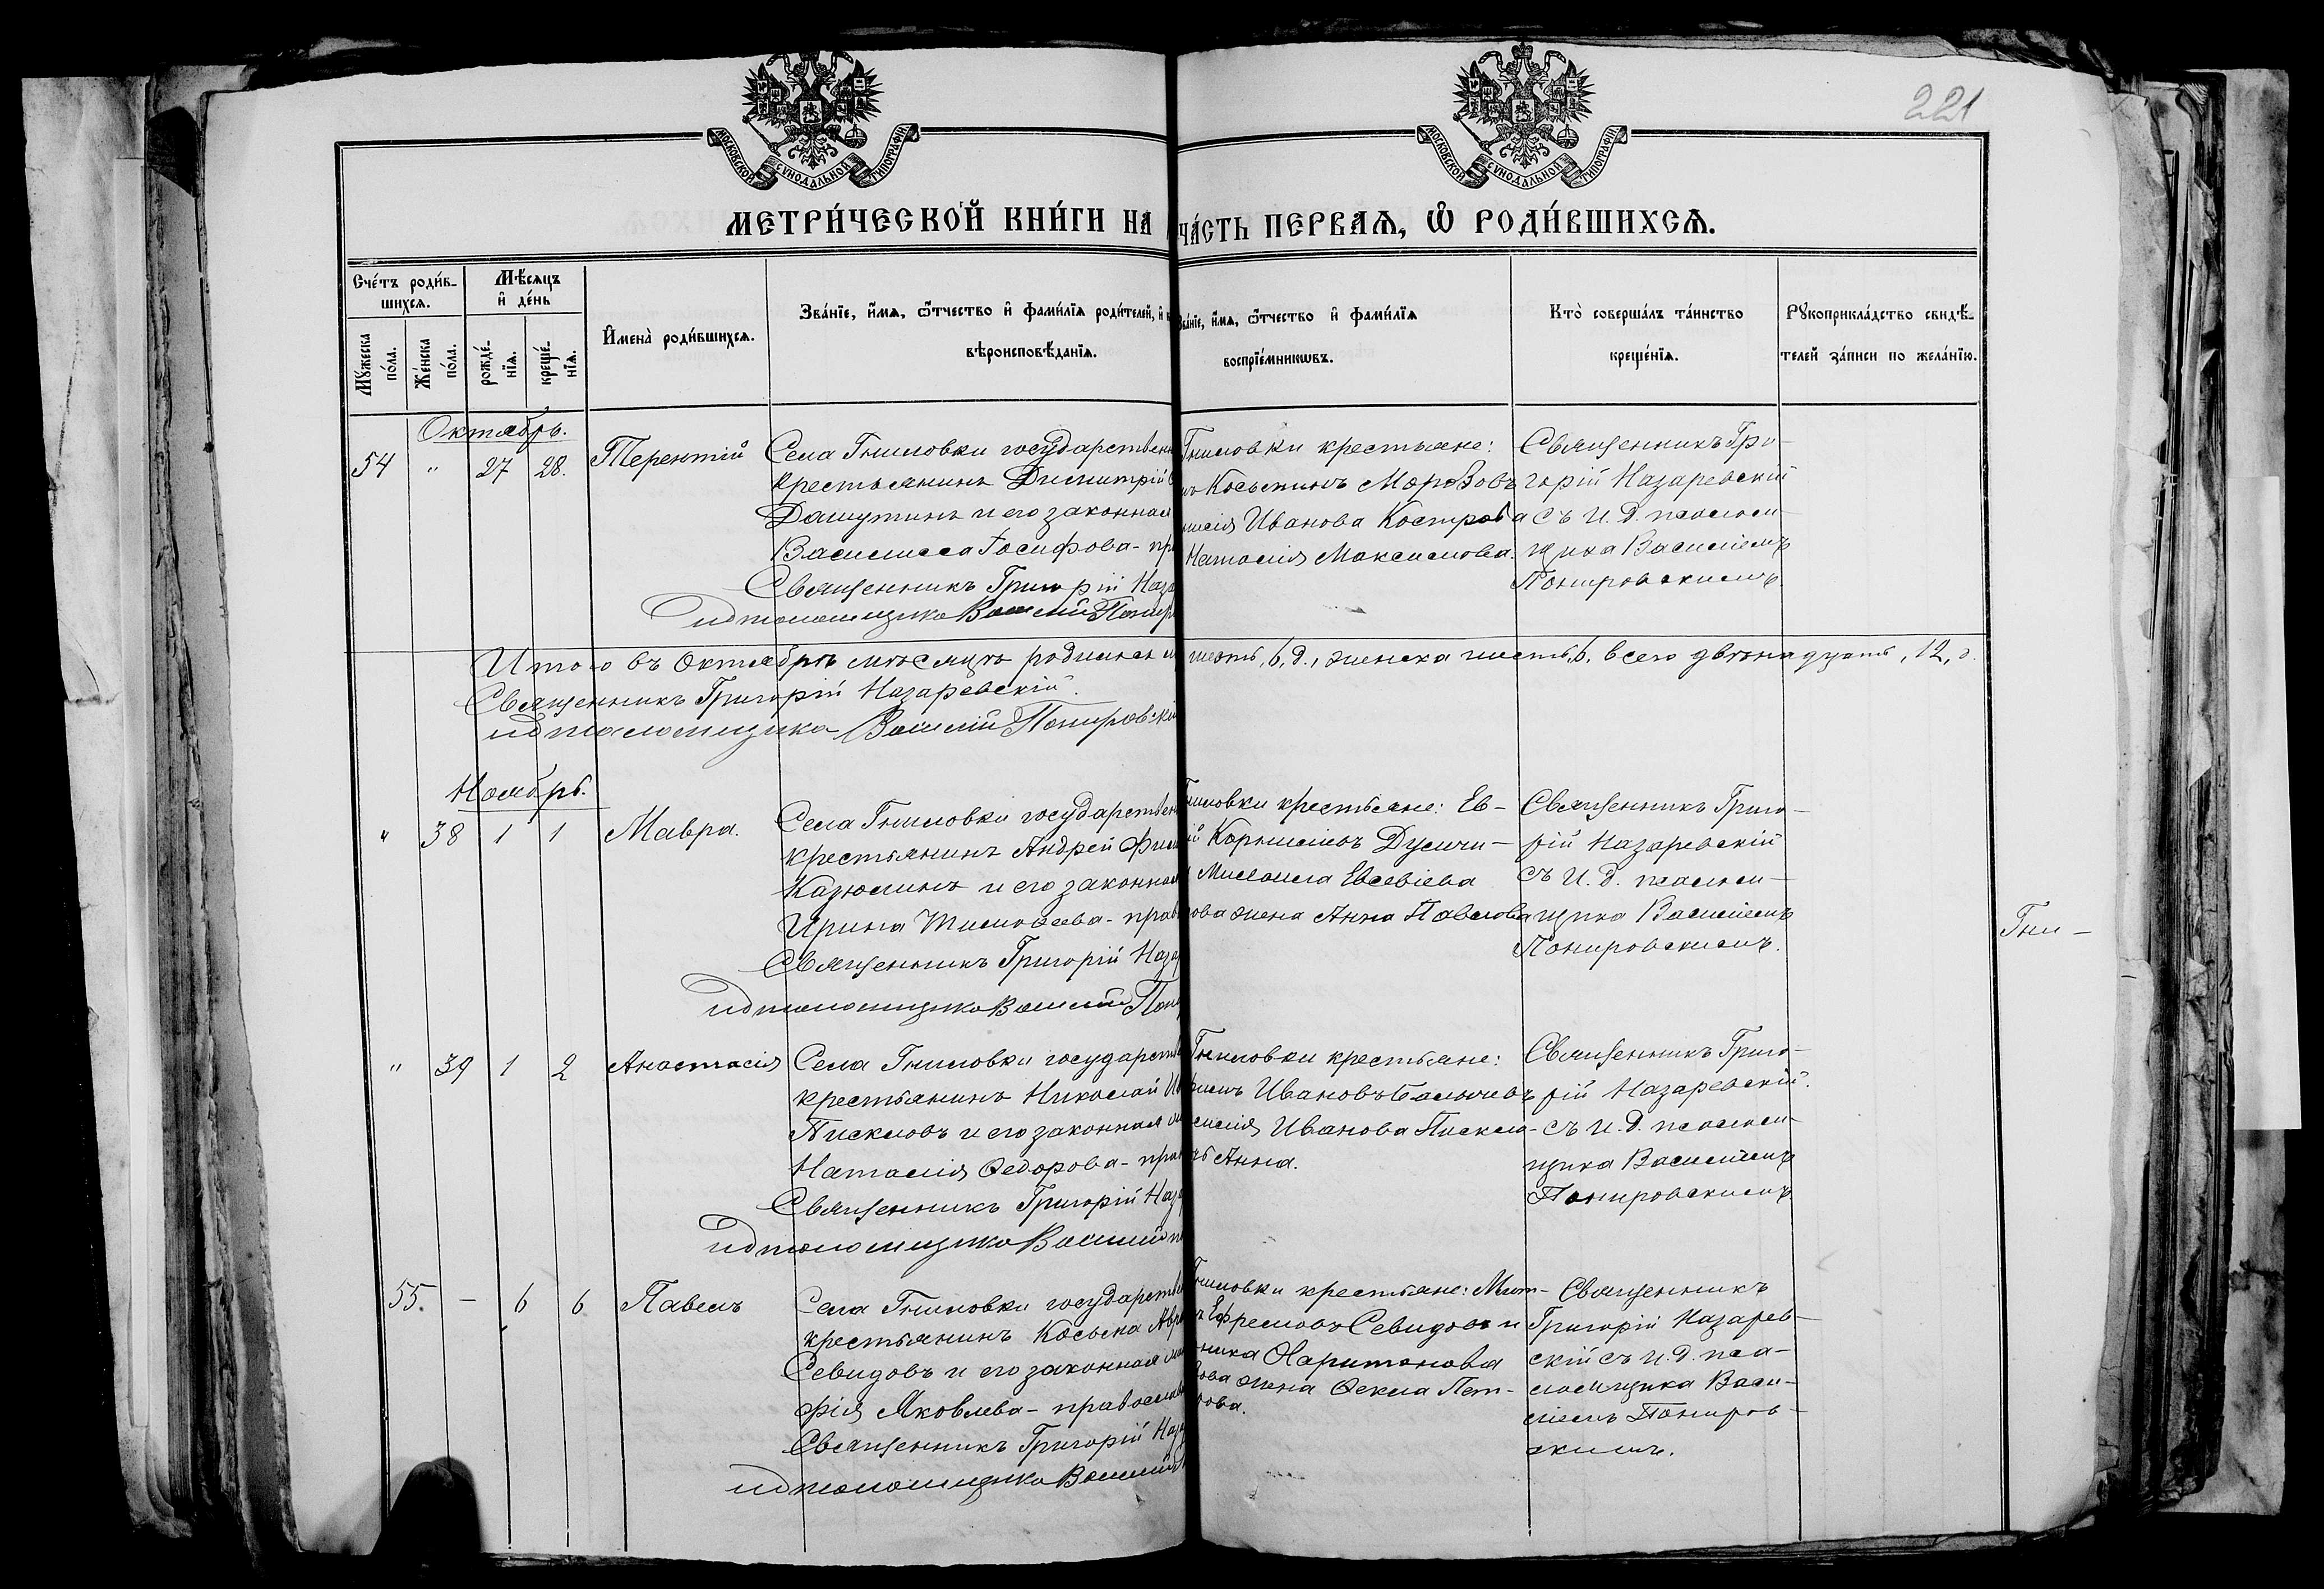 221
МОСКОВСКОЙ СѴНОДАЛЬНОЙ ТИПОГРАФІИ
МОСКОВСКОЙ СѴНОДАЛЬНОЙ ТИПОГРАФІИ
МЕТРИ́ЧЕСКОЙ КНИ́ГИ НА
ЧА́СТЬ ПЕРВАѦ, Ѡ РОДИ́ВШИХСѦ.
Сче́тъ роди́в-
шихсѧ.
Мѣ́сѧцъ
и҆ де́нь
Мꙋ́жеска
по́ла.
Же́нска
по́ла.
рожде́-
нїѧ.
креще́-
нїѧ.
И҆мена̀ роди́вшихсѧ.
Зва́нїе, и҆́мѧ, ѻ҆́тчество и҆ фами́лїѧ роди́телей, и҆
вѣроисповѣ́данїѧ.
Зва́нїе, и҆́мѧ, ѻ҆́тчество и҆ фами́лїѧ
воспрїе́мникѡвъ.
Кто̀ соверша́лъ та́инство
креще́нїѧ.
Рꙋкоприкла́дство свидѣ́-
телей за́писи по жела́нїю.
Октябрь.
54 " 27 28. Терентій
Села Гниловки государствен
крестьянинъ Димитрій
Дашутинъ и его законная
Василисса Іосифова - пр
Священникъ Григорій Наза
и д псаломщика Василій Понир
Гниловки крестьяне:
Косьминъ Морозовъ
Иванова Кострова
Наталія Максимова.
Священникъ Гри-
горій Назаревскій
съ И. Д. псалом-
щика Василіемъ
Понировскимъ.
Итого въ Октябрѣ мѣсяцѣ родилось м
шесть, 6, д., женска шесть, 6, всего двѣнадцать, 12, д.
Священникъ Григорій Назаревскій.
и д псаломщика Василій Понировскі
Ноябрь.
" 38 1 1 Мавра.
Села Гниловки государствен
крестьянинъ Андрей Фил
Казюлинъ и его законная
Ирина Тимоѳеева - прав
Священникъ Григорій Наза
и д псаломщика Василій Пони
Гниловки крестьяне: Ев-
Евсевіева
ова жена Анна Павлова
Священникъ Григо-
рій Назаревскій
съ И. д. псалом-
щика Василіемъ
Понировскимъ.
Гни-
" 39 1 2 Анастасія
Села Гниловки государстве
крестьянинъ Николай И
Писклов​ъ и его законная
Наталія Ѳедорова - прав
Священникъ Григорій Наза
и д псаломщика Василій
Гниловки крестьяне:
Ивановъ
Иванова Пискло-
Анна.
Священникъ Григо-
рій Назаревскій.
съ И. Д. псалом-
щика Василіемъ
Понировскимъ
55. - 6 6 Павелъ
Села Гниловки государстве
крестьянинъ Косьма Авра
Севидовъ и его законная
фія Яковлева - православ
Священникъ Григорій Наза
и д псаломщика Василій
Гниловки крестьяне: Мит-
Ефремовъ Севидовъ и
Харитонова
ова жена Ѳекла Пет-
рова.
Священникъ
Григорій Назарев-
скій съ и. д. пса-
ломщика Васи-
ліемъ Пониров-
скимъ.